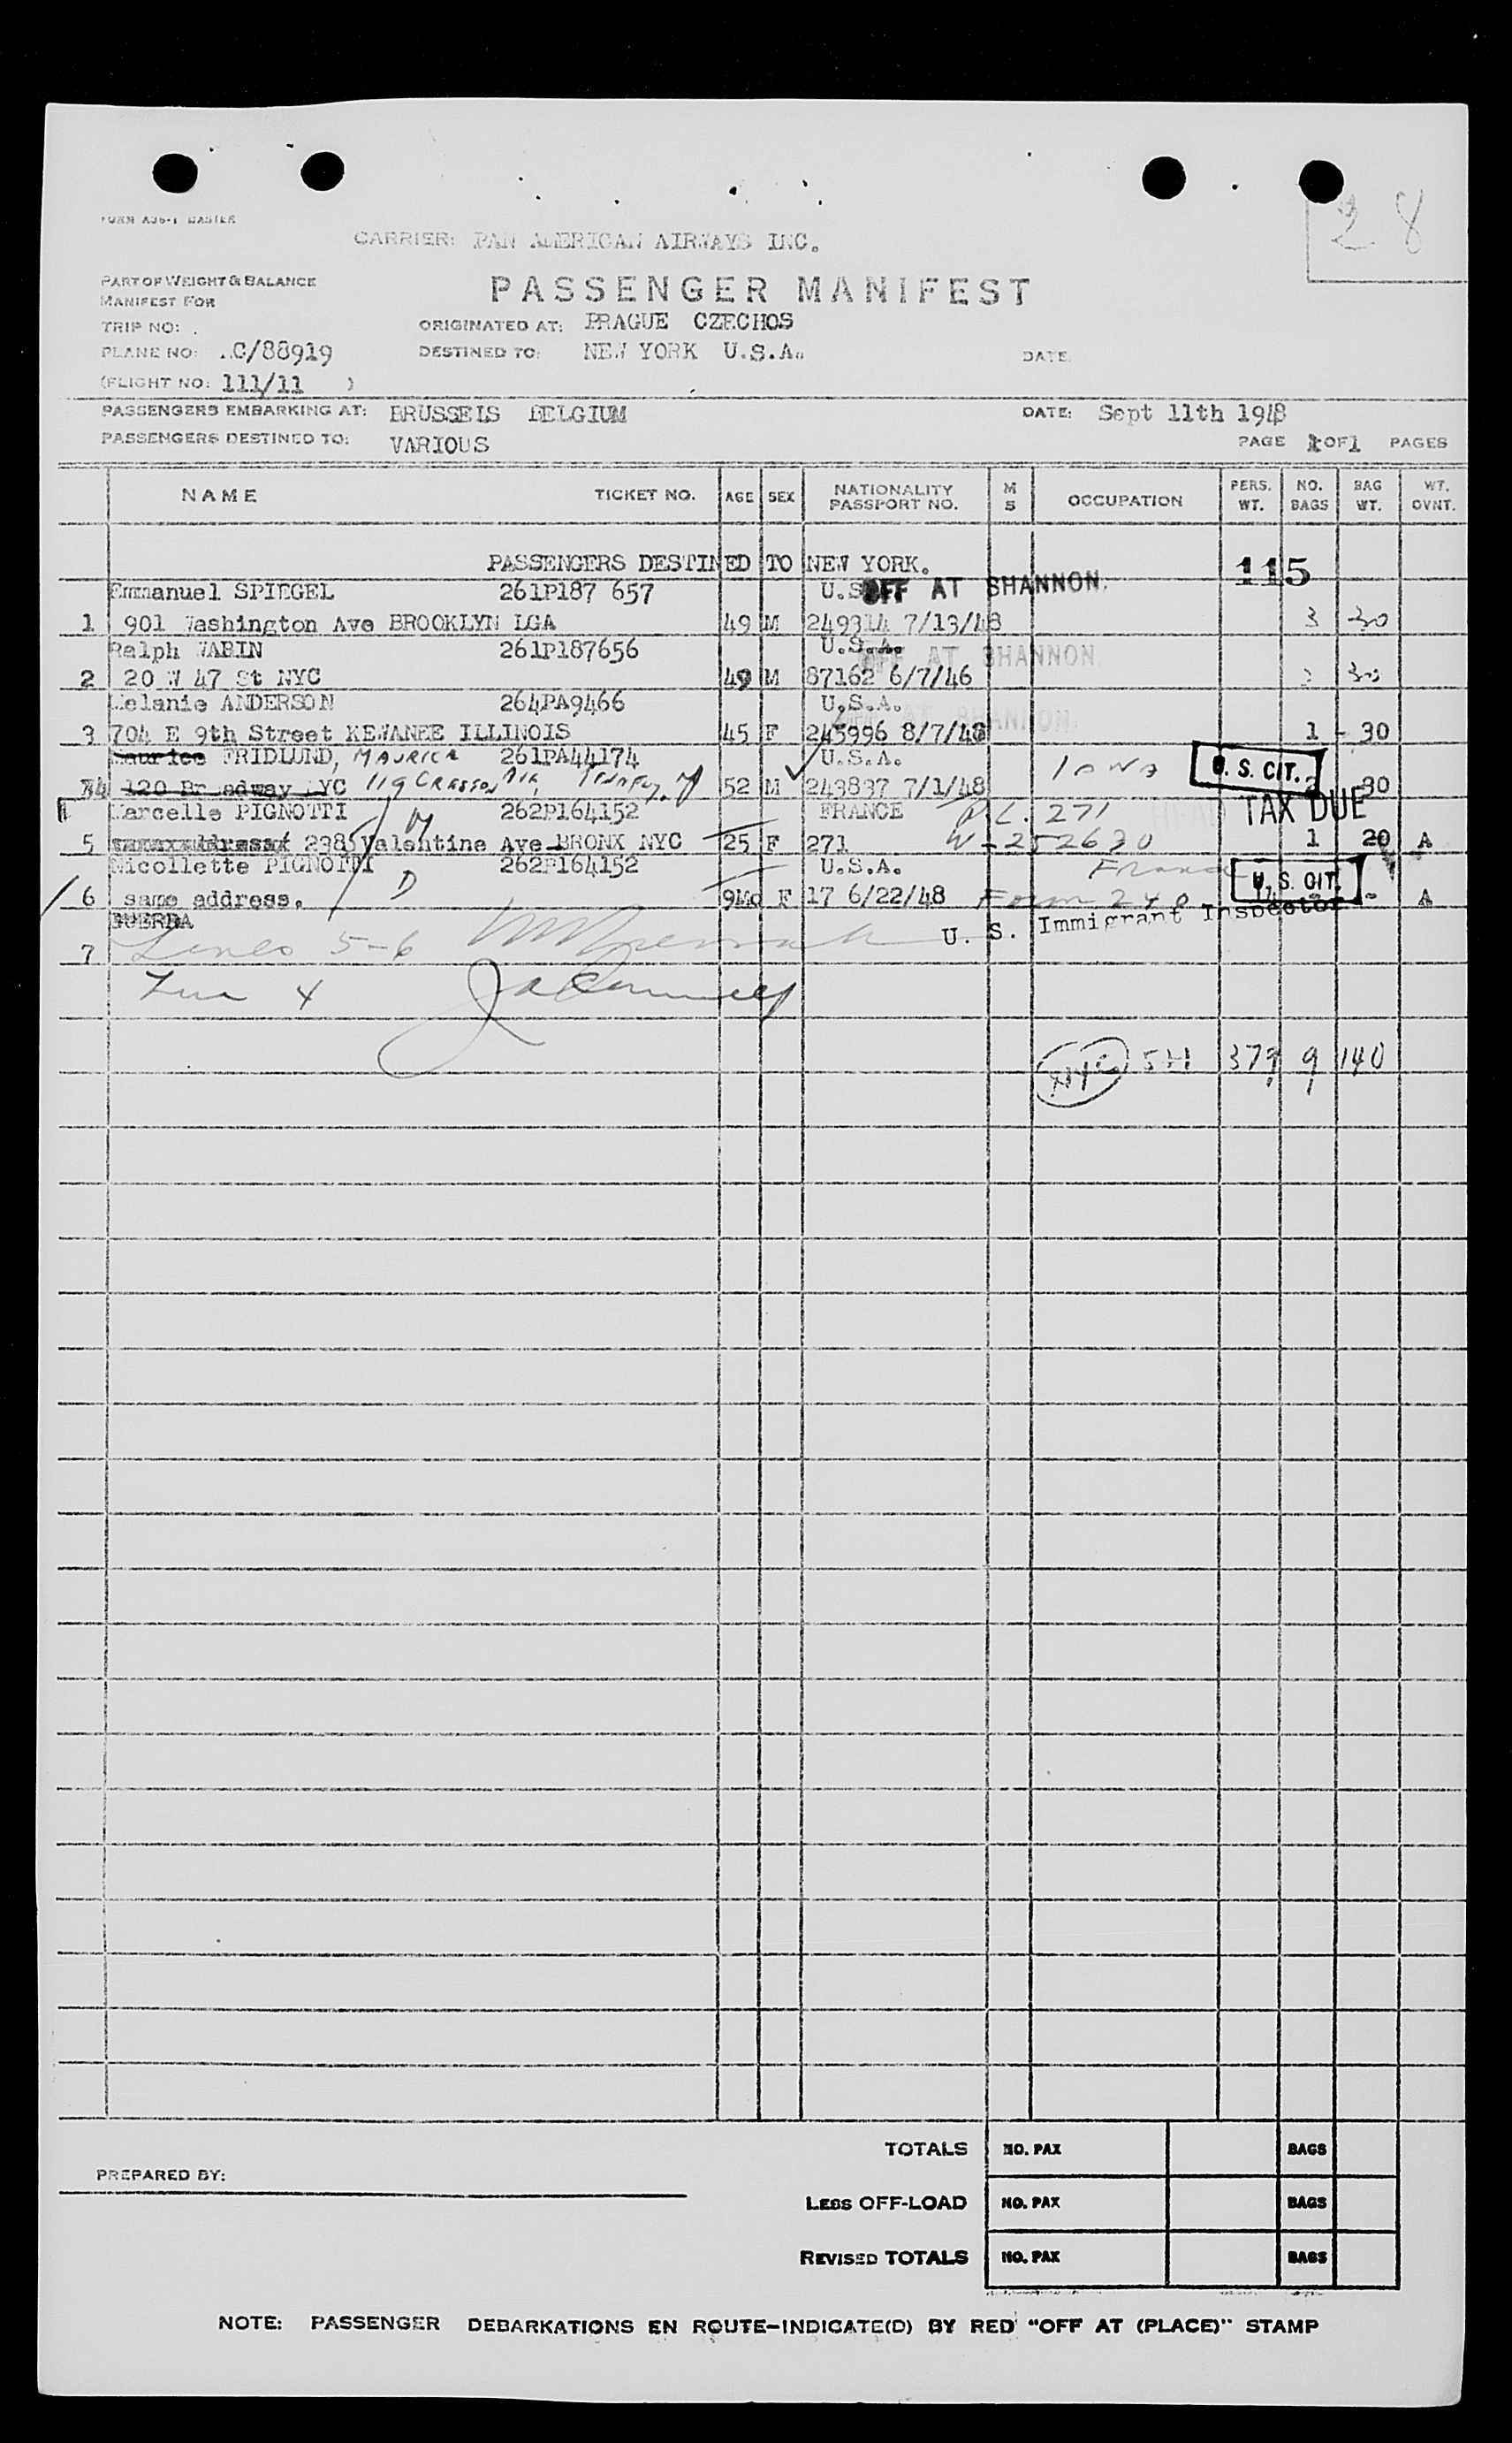 FORM A36-1 MASTER
28
CARRIER: PAN AMERICAN AIRWAYS INC.
PART OF WEIGHT & BALANCE
MANIFEST FOR
PASSENGER MANIFEST
TRIP NO: .
ORIGINATED AT: PRAGUE CZECHOS
PLANE NO: ..C/88919
DESTINED TO: NEW YORK U.S.A.
DATE
(FLIGHT NO: 111/11 )
PASSENGERS EMBARKING AT: BRUSSELS BELGIUM
DATE: Sept 11th 1948
PASSENGERS DESTINED TO: VARIOUS
PAGE 1 OF 1 PAGES
NAME TICKET NO. AGE SEX NATIONALITY PASSPORT NO. M S OCCUPATION PERS. WT. NO. BAGS BAG WT. WT. OVNT.
PASSENGERS DESTINED TO NEW YORK. 115
Emmanuel SPIEGEL 261P187 657 U.S. OFF AT SHANNON.
1 901 Washington Ave BROOKLYN LGA 49 M 249314 7/13/48 3 30
Ralph WABIN 261P187656 U.S.A. OFF AT SHANNON
2 20 W 47 St NYC 49 M 87162 6/7/46 30
Melanie ANDERSON 264PA9466 U.S.A. OFF AT SHANNON.
3 704 E 9th Street KEWANEE ILLINOIS 45 F 245996 8/7/48 1 - 30
Maurice FRIDLUND, MAURICE 261PA44174 U.S.A.
4 120 Broadway NYC 119 CRESSON AVE, TENAFLY, NJ 52 M 243837 7/1/48 IOWA U. S. CIT. 30
Marcelle PIGNOTTI 262P164152 FRANCE P.L. 271 HEAD TAX DUE
5 2385 Valentine Ave BRONX NYC 25 F 271 W-252630 1 20 A
M
Nicollette PIGNOTTI 262P164152 U.S.A. France U. S. CIT.
6 same address. D 9Mo F 17 6/22/48 Form 240 - A
GUERRA
U. S. Immigrant Inspector
7 Lines 5-6
Line 4
NYC 5H 379 9 140
TOTALS NO. PAX BAGS
PREPARED BY:
LESS OFF-LOAD NO. PAX BAGS
REVISED TOTALS NO. PAX BAGS
NOTE: PASSENGER DEBARKATIONS EN ROUTE-INDICATE(D) BY RED "OFF AT (PLACE)" STAMP